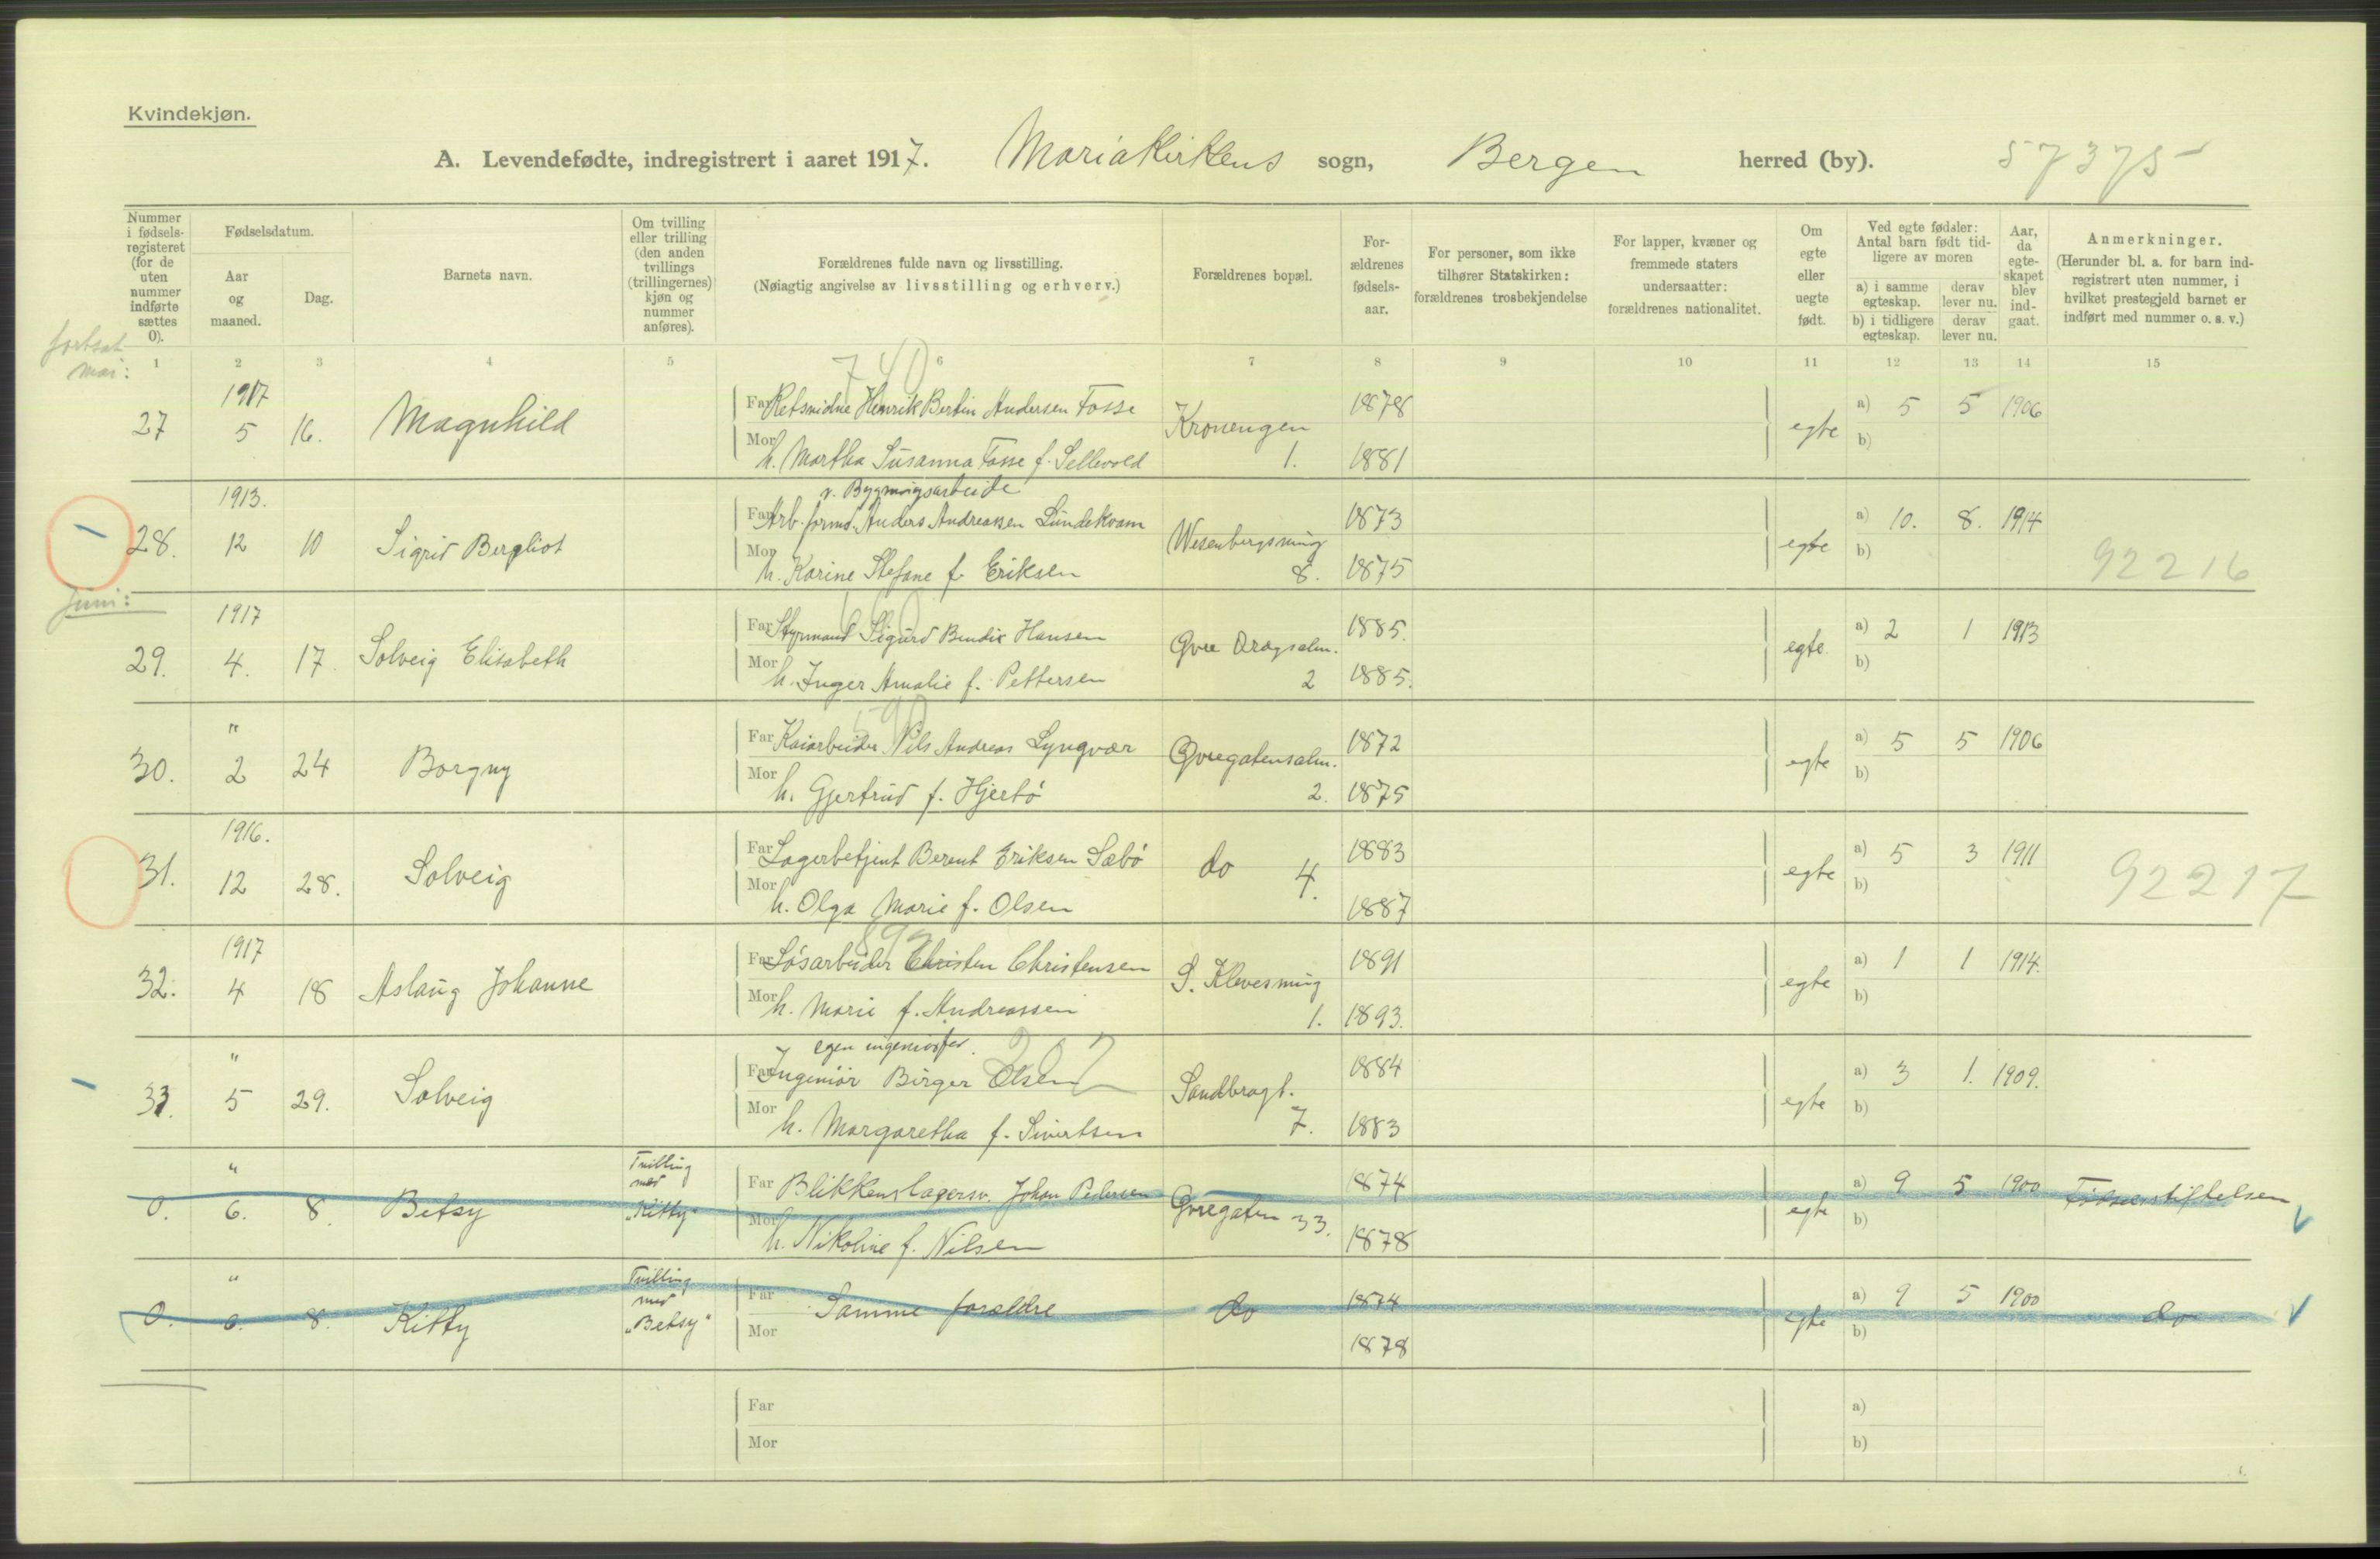 Kvindekjøn.
A. Levendefødte, indregistrert i aaret 1917. Mariakirkens sogn, Bergen herred (by). 57375
Nummer i fødselsregisteret (for de uten nummer indførte sættes 0).
Fødselsdatum.
Aar og maaned.
Dag.
Barnets navn.
Om tvilling eller trilling (den anden tvillings (trillingernes) kjøn og nummer anføres).
Forældrenes fulde navn og livsstilling.
(Nøiagtig angivelse av livsstilling og erhverv.)
Forældrenes bopæl.
Forældrenes fødselsaar.
For personer, som ikke tilhører Statskirken: forældrenes trosbekjendelse
For lapper, kvæner og fremmede staters undersaatter: forældrenes nationalitet.
Om egte eller uegte født.
Ved egte fødsler: Antal barn født tidligere av moren
a) i samme egteskap. derav lever nu.
b) i tidligere egteskap. derav lever nu.
Aar, da egteskapet blev indgaat.
Anmerkninger.
(Herunder bl. a. for barn indregistrert uten nummer, i hvilket prestegjeld barnet er indført med nummer o. s. v.)
fortsat
mai:
1 2 3 4 5 6 7 8 9 10 11 12 13 14 15
740
1917 Far Henrik Bertin Andersen Fosse 1878 a) 5 5 1906
27 5 16. Magnhild Kronengen 1. egte b)
Mor h. Martha Susanna Fosse f. Sellevold 1881
1913. v. Bygningsarbeide
Far Arb. formd. Anders Andreasen Lundekvam 1873 a) 10. 8. 1914
28. 12 10 Sigrid Bergliot Wesenbergsmug 8. egte b) 92216
Mor h. Karine Stefane f. Eriksen 1875
Juni:
1917 Far Styrmand Sigurd Bendix Hansen 1885. a) 2 1 1913
29. 4. 17. Solveig Elisabeth Øvre Dragsalm. 2 egte b)
Mor h. Inger Amalie f. Pettersen 1885.
" Far Kaiarbeider Nils Andreas Lyngvær 1872 a) 5 5 1906
30. 2 24 Borgny Øvregatensalm. 2. egte b)
Mor h. Gjertrud f. Hjertø 1875
1916. Far Lagerbetjent Berent Eriksen Sæbø 1883 a) 5 3 1911
31. 12 28. Solveig do 4. egte b) 92217
Mor h. Olga Marie f. Olsen 1887
1917 Far Christen Christensen 1891 a) 1 1 1914.
32. 4 18 Aslaug Johanne S. Klevesmug 1. egte b)
Mor h. Marie f. Andreassen 1893.
" 202
Far Ingeniør Birger Olsen 1884 a) 3 1. 1909.
33. 5 29. Solveig Sandbrogt. 7. egte b)
Mor h. Margaretha f. Sivertsen 1883
" Tvilling med "Kitty" Far Blikkenslagersv. Johan Pedersen 1874 a) 9 5 1900 Fødselsstiftelsen
0. 6. 8. Betsy Øvregaten 33. egte b)
Mor h. Nikoline f. Nilsen 1878
" Tvilling med "Betsy" Far Samme forældre 1874 a) 9 5 1900
0. 6. 8. Kitty do egte b) do
Mor 1878
Far a)
Mor b)